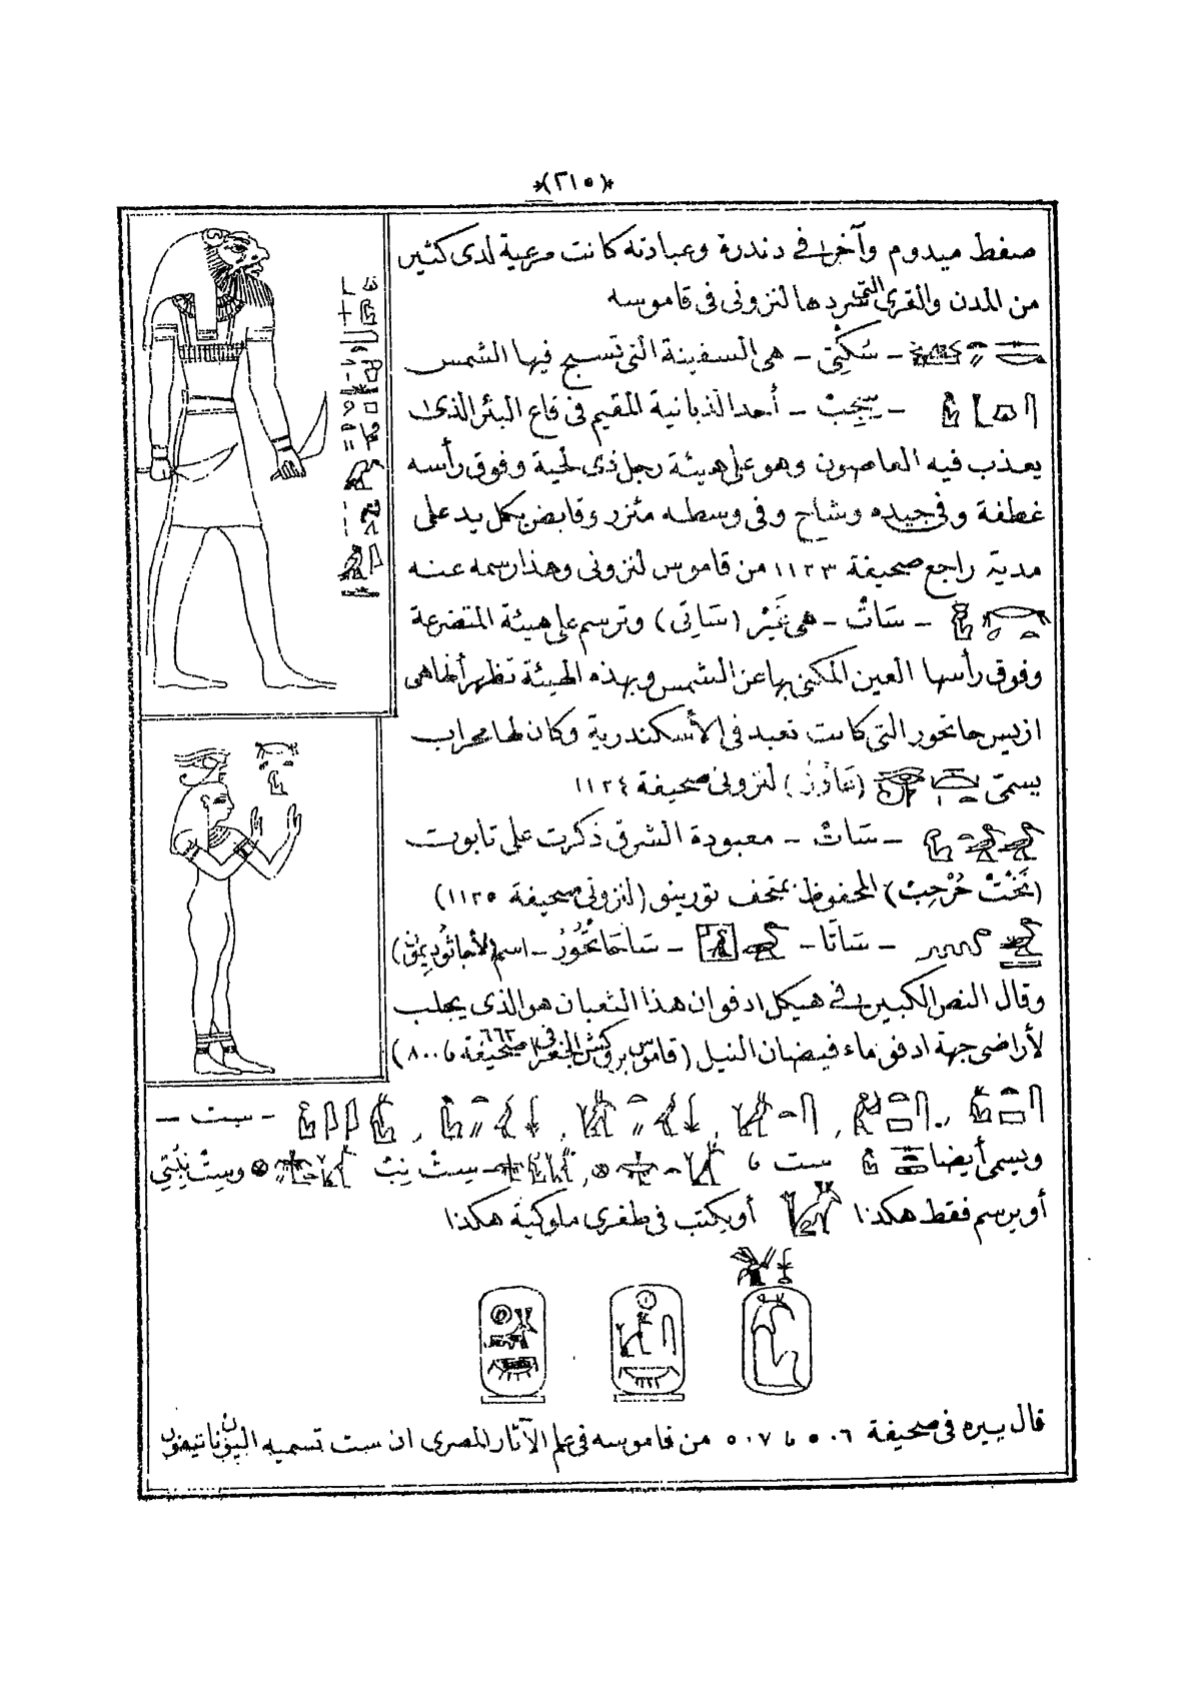 *(٢١٥)*
صفط ميدوم وآخر فى دندرة وعبادته كانت مرعية لدى كثير
من المدن والقرى التى سردها لنزونى فى قاموسه
– سَكْتِى – هى السفينة التى تسبح فيها الشمس
– سِجِبْ – أحد الزبانية المقيم فى قاع البئر الذى
يعذب فيه العاصون وهو على هيئة رجل ذى لحية وفوق رأسه
غطفة وفى جيده وشاح وفى وسطه مئزر وقابض بكل يد على
مدية راجع صحيفة ١١٢٣ من قاموس لنزونى وهذا رسمه عنه
– سَاتْ – هى غَيْرْ (سَاتِى) وترسم على هيئة المتضرعة
وفوق رأسها العين المكنى بها عن الشمس وبهذه الهيئة تظهر أنها هى
ازيس حاتحور التى كانت تعبد فى الأسكندرية وكان لها محراب
يسمى لنزونى صحيفة ١١٢٤
– سَاتْ – معبودة الشرق ذكرت على تابوت
المحفوظ بمتحف تورينو (لنزونى صحيفة ١١٢٥)
– سَاتَا – – سَاحَاتْحُورْ – اسم
وقال النص الكبير فى هيكل ادفو ان هذا الثعبان هو الذى يجلب
لأراضى جهة ادفو ماء فيضان النيل (قاموس بروكش الجغرافى صحيفة ٦٦٢ ٨٠٠)
– ست –
ويسمى أيضا ست – ستْ نِبْ وستْ نِبْتِى
أو يرسم فقط هكذا أو يكتب فى طغرى ملوكية هكذا
قال بيره فى صحيفة ٥٠٦ ٥٠٧ من قاموسه فى علم الآثار المصرى ان ست تسميه اليونان تيفون